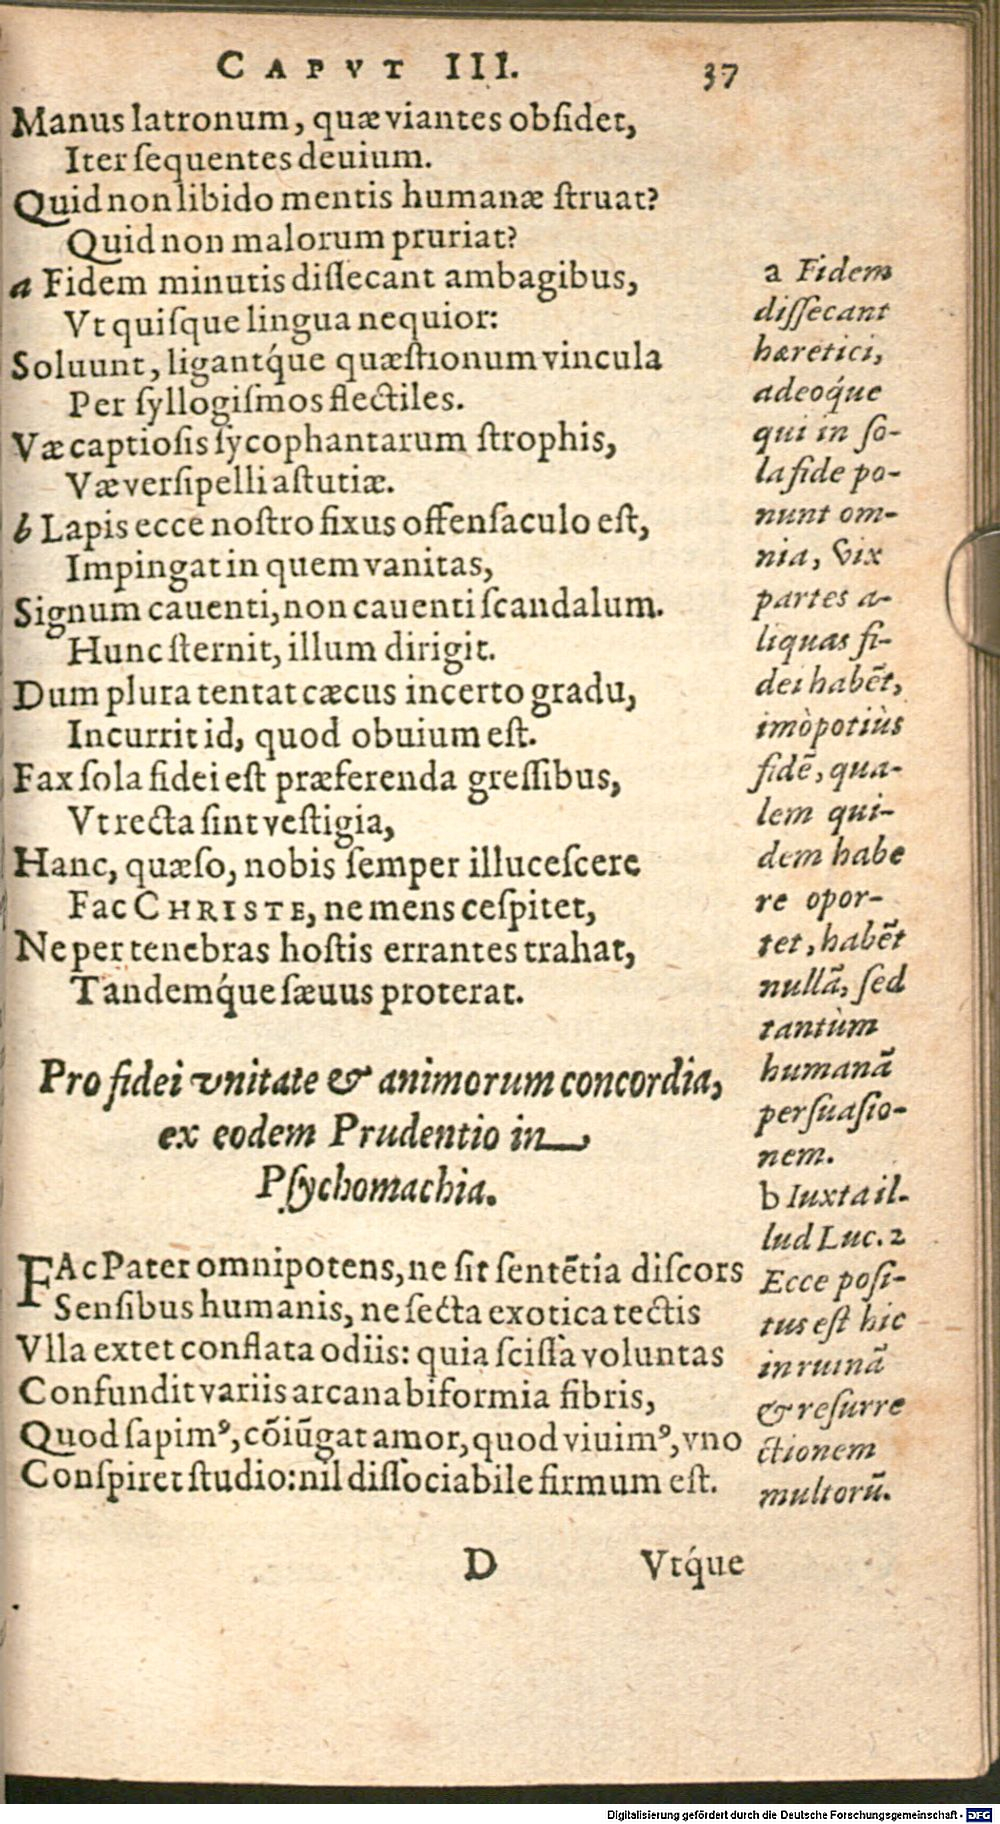 CAPVT III. 37
Manus latronum, quæ viantes obſidet,
Iter ſequentes deuium.
Quid non libido mentis humanæ ſtruat?
Quid non malorum pruriat?
a Fidem minutis diſſecant ambagibus,
Vt quiſque lingua nequior:
Soluunt, ligantq́ue quæſtionum vincula
Per ſyllogiſmos flectiles.
Væ captioſis ſycophantarum ſtrophis,
Væ verſipelli aſtutiæ.
b Lapis ecce noſtro fixus offenſaculo eſt,
Impingat in quem vanitas,
Signum cauenti, non cauenti ſcandalum.
Hunc ſternit, illum dirigit.
Dum plura tentat cæcus incerto gradu,
Incurrit id, quod obuium eſt.
Fax ſola fidei eſt præferenda greſſibus,
Vt recta ſint veſtigia,
Hanc, quæſo, nobis ſemper illuceſcere
Fac CHRISTE, ne mens ceſpitet,
Ne per tenebras hoſtis errantes trahat,
Tandemq́ue ſæuus proterat.
Pro fidei vnitate & animorum concordia,
ex eodem Prudentio in
Pſychomachia.
FAc Pater omnipotens, ne ſit ſentẽtia diſcors
Senſibus humanis, ne ſecta exotica tectis
Vlla extet conflata odiis: quia ſciſſa voluntas
Confundit variis arcana biformia fibris,
Quod ſapimꝰ, cõiũgat amor, quod viuimꝰ, vno
Conſpiret ſtudio: nil diſſociabile firmum eſt.
D Vtq́ue
a Fidem
diſſecant
hæretici,
adeoq́ue
qui in ſo-
la fide po-
nunt om-
nia, vix
partes a-
liquas fi-
dei habẽt,
imò potiùs
fidẽ, qua-
lem qui-
dem habe
re opor-
tet, habẽt
nullã, ſed
tantùm
humanã
perſuaſio-
nem.
b Iuxta il-
lud Luc. 2
Ecce poſi-
tus eſt hic
in ruinã
& reſurre
ctionem
multorũ.
Digitalisierung gefördert durch die Deutsche Forschungsgemeinschaft - DFG